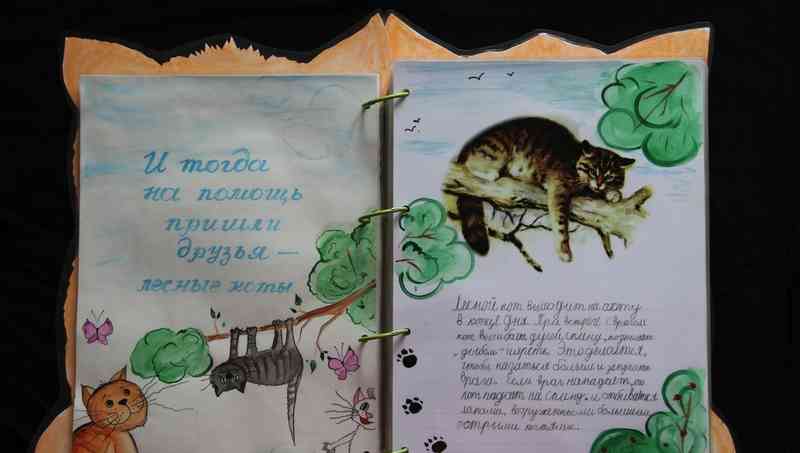 И тогда
на помощь
пришли
друзья —
лесные коты
Лесной кот выходит на охоту
в конце дня. При встрече с врагом
кот выгибает дугой спину, поднимает
дыбом шерсть. Это делается,
чтобы казаться больше и запугать
врага. Если враг нападает, то
кот падает на спину и отбивается
лапами, вооружёнными большими
острыми когтями.